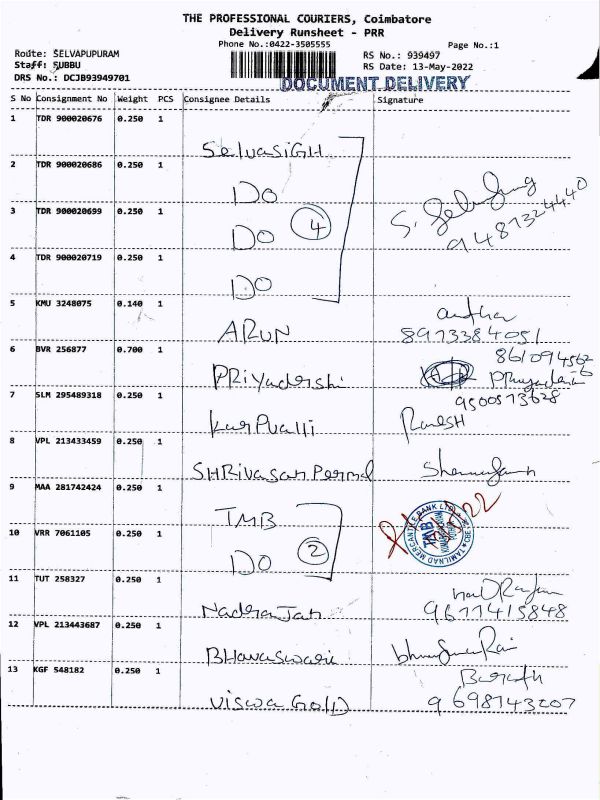 THE PROFESSIONAL COURIERS, Coimbatore
Delivery Runsheet - PRR
Phone No.:0422-3505555
Page No.:1
Route: SELVAPUPURAM
Staff: SUBBU
DRS No.: DCJB93949701
RS No.: 939497
RS Date: 13-May-2022
DOCUMENT DELIVERY
S No Consignment No Weight PCS Consignee Details Signature
1 TDR 900020676 0.250 1
SelvaSiGH
2 TDR 900020686 0.250 1
DO
3 TDR 900020699 0.250 1
DO 4
4 TDR 900020719 0.250 1
DO
5 KMU 3248075 0.140 1
ARUN
8973384051
6 BVR 256877 0.700 1
PRiyadershi
7 SLM 295489318 0.250 1
9500573628
RameSH
8 VPL 213433459 0.250 1
9 MAA 281742424 0.250 1
TMB
10 VRR 7061105 0.250 1
DO 2
TAMILNAD MERCANTILE BANK LTD
TMB
11 TUT 258327 0.250 1
9677415848
12 VPL 213443687 0.250 1
BHavaswarie
13 KGF 548182 0.250 1
Barath
Viswa GolD
9698743207